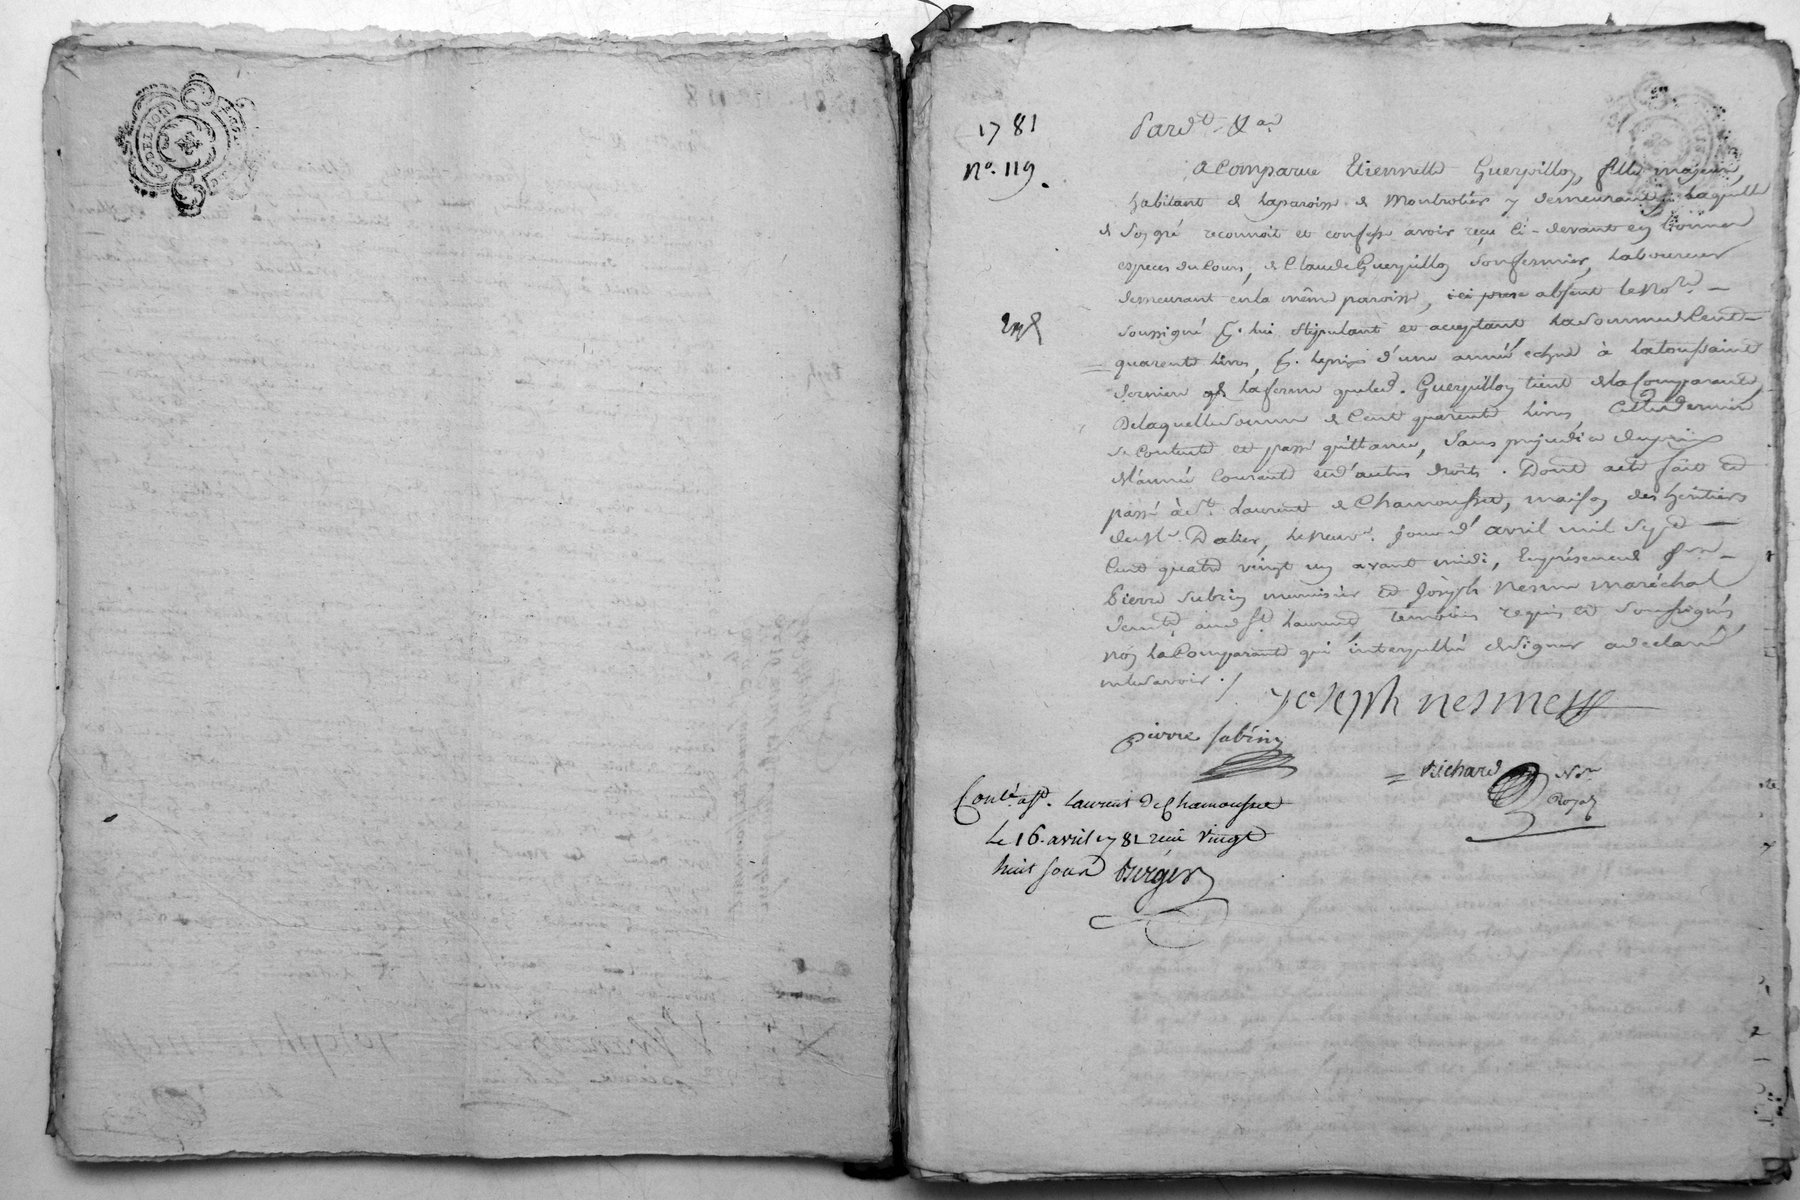 G. DE LYON
1781
N°. 119.
Pard.t &a.
a Comparue Etiennette Guerpillon, fille majeure,
habitant de la paroisse de Montrotier y demeurant, Laquelle
de Son gré reconnoit et confesse avoir reçu Ci-devant en bonnes
especes du Cours, de Claude Guerpillon Son fermier, Laboureur
demeurant en la même paroisse, ici prese absent le No.re
soussigné p. lui stipulant et acceptant La Somme de Cent
quarente Livres, p. le prix d'une année echue à la toussaint
derniere de la ferme que led. Guerpillon tient de la Comparante,
De laquelle Somme de Cent quarente Livres Cette derniere
se contente et passe quittance, Sans prejudice du prix
de l'année Courante et d'autres droits. Dont acte fait et
passé à St. Laurent de Chamousset, maison des heritiers
du Sr. Dalier, le neuv.e jour d'avril mil Sept
Cent quatre vingt un avant midi, En presence de
Pierre Subrin menuisier et Joseph Nesme maréchal
demt. aud. St. Laurent, témoins requis et Soussignés
non la Comparante qui interpellée de Signer a declaré
ne le savoir ./
joseph nesme
pierre subrin
Richard No.re
Royal
Conlé. a St. Laurent De Chamousset
Le 16. avril 1781 recu vingt
huit sous Berger